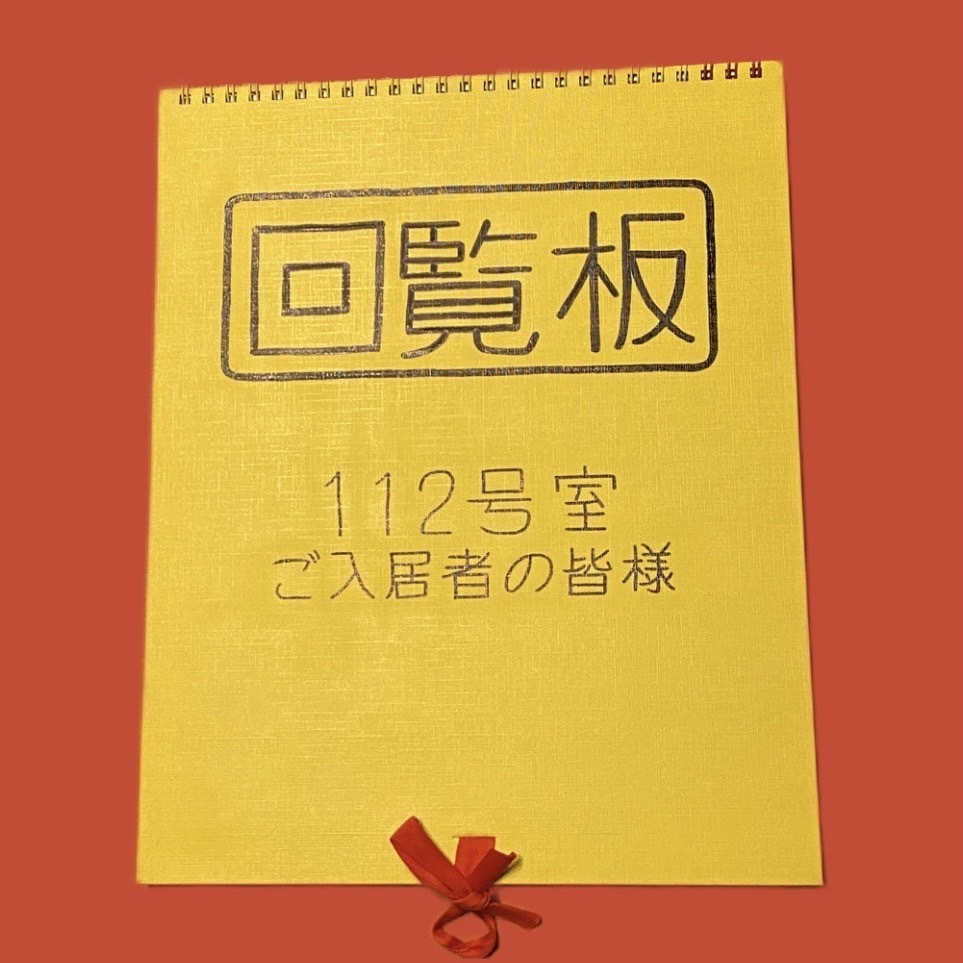 回覧板
112号室
ご入居者の皆様